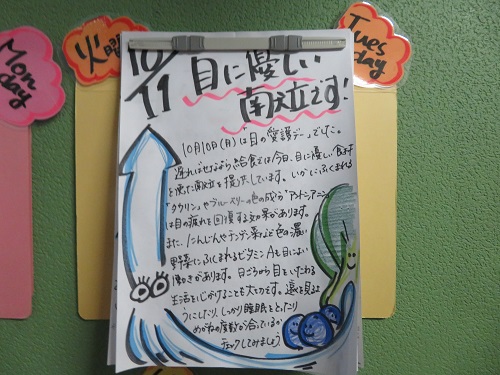 Mon
day
火曜
Tues
day
10/11
目に優しい
献立です!
10月10日(月)は「目の愛護デー」でした。
遅ればせながら給食では今日、目に優しい食材
を使た献立を提供しています。いかにふくまれる
"タウリン"やブルーベリーの色の成分"アントシアニン"
は目の疲れを回復する効果があります。
また、にんじんやチンゲン菜など色の濃い
野菜にふくまれるビタミンAも目にいい
働きがあります。日ごろから目をいたわる
生活を心がけることも大切です。遠くを見るよ
うにしたり、しっかり睡眠をとったり
めがねの度数が合っているか
チェックしてみましょう